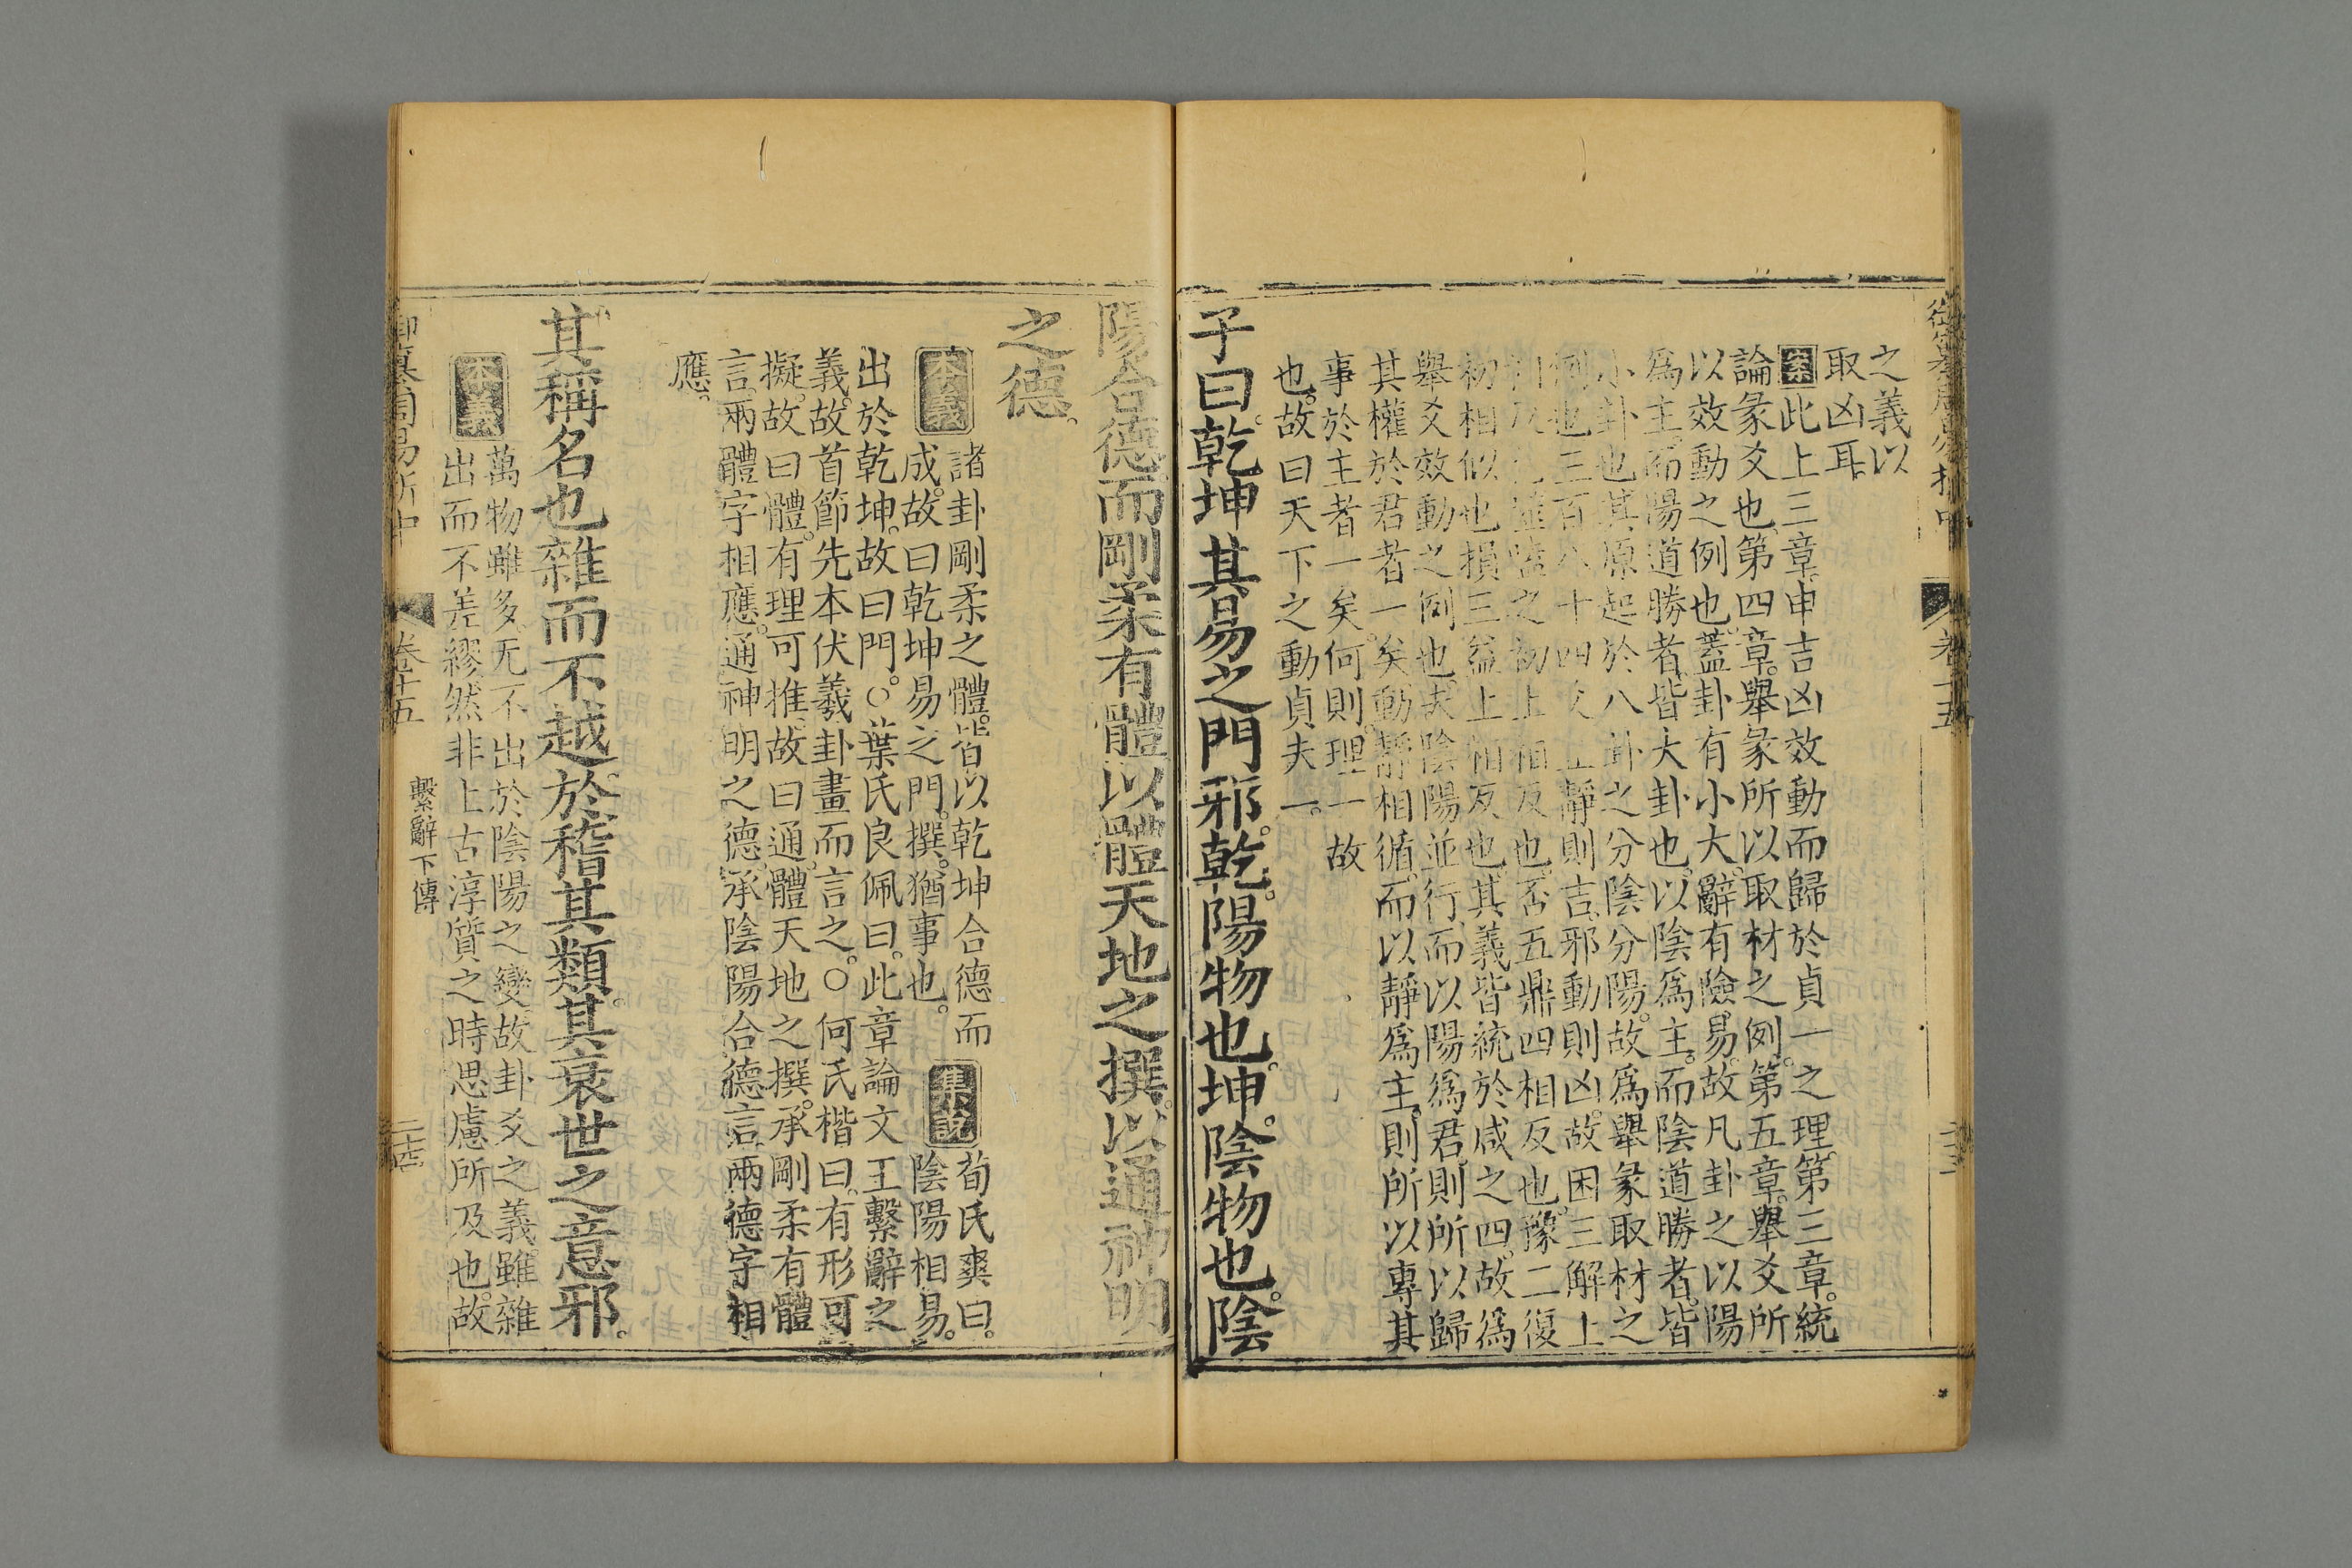 之義以
取凶耳
案此上三章申吉凶效動而歸於貞一之理第三章統
論彖爻也第四章舉彖所以取材之例第五章舉爻所
以效動之例也蓋卦有小大辭有險易故凡卦之以陽
爲主而陽道勝者皆大卦也以陰爲主而陰道勝者皆
小卦也其原起於八卦之分陰分陽故爲舉彖取材之
例也三百八十四爻 靜則吉邪動則凶故困三解上
相反也 噬嗑之初上相反也否五鼎四相反也豫二復
初相似也損三益上相反也其義皆統於咸之四故爲
舉爻效動之例也夫陰陽並行而以陽爲君則所以歸
其權於君者一矣動靜相循而以靜爲主則所以專其
事於主者一矣何則理一故
也故曰天下之動貞夫一
子曰乾坤其易之門邪乾陽物也坤陰物也陰
陽合德而剛柔有體以體天地之撰以通神明
之德
本義 諸卦剛柔之體皆以乾坤合德而
成故曰乾坤易之門撰猶事也
集說 荀氏爽曰
陰陽相易
出於乾坤故曰門○葉氏良佩曰此章論文王繫辭之
義故首節先本伏羲卦畫而言之○何氏楷曰有形可
擬故曰體有理可推故曰通體天地之撰承剛柔有體
言兩體字相應通神明之德承陰陽合德言兩德字相
應
其稱名也雜而不越於稽其類其衰世之意邪
本義 萬物雖多无不出於陰陽之變故卦爻之義雖雜
出而不差繆然非上古淳質之時思慮所及也故
御纂周易折中 卷十五 繫辭下傳 二十四